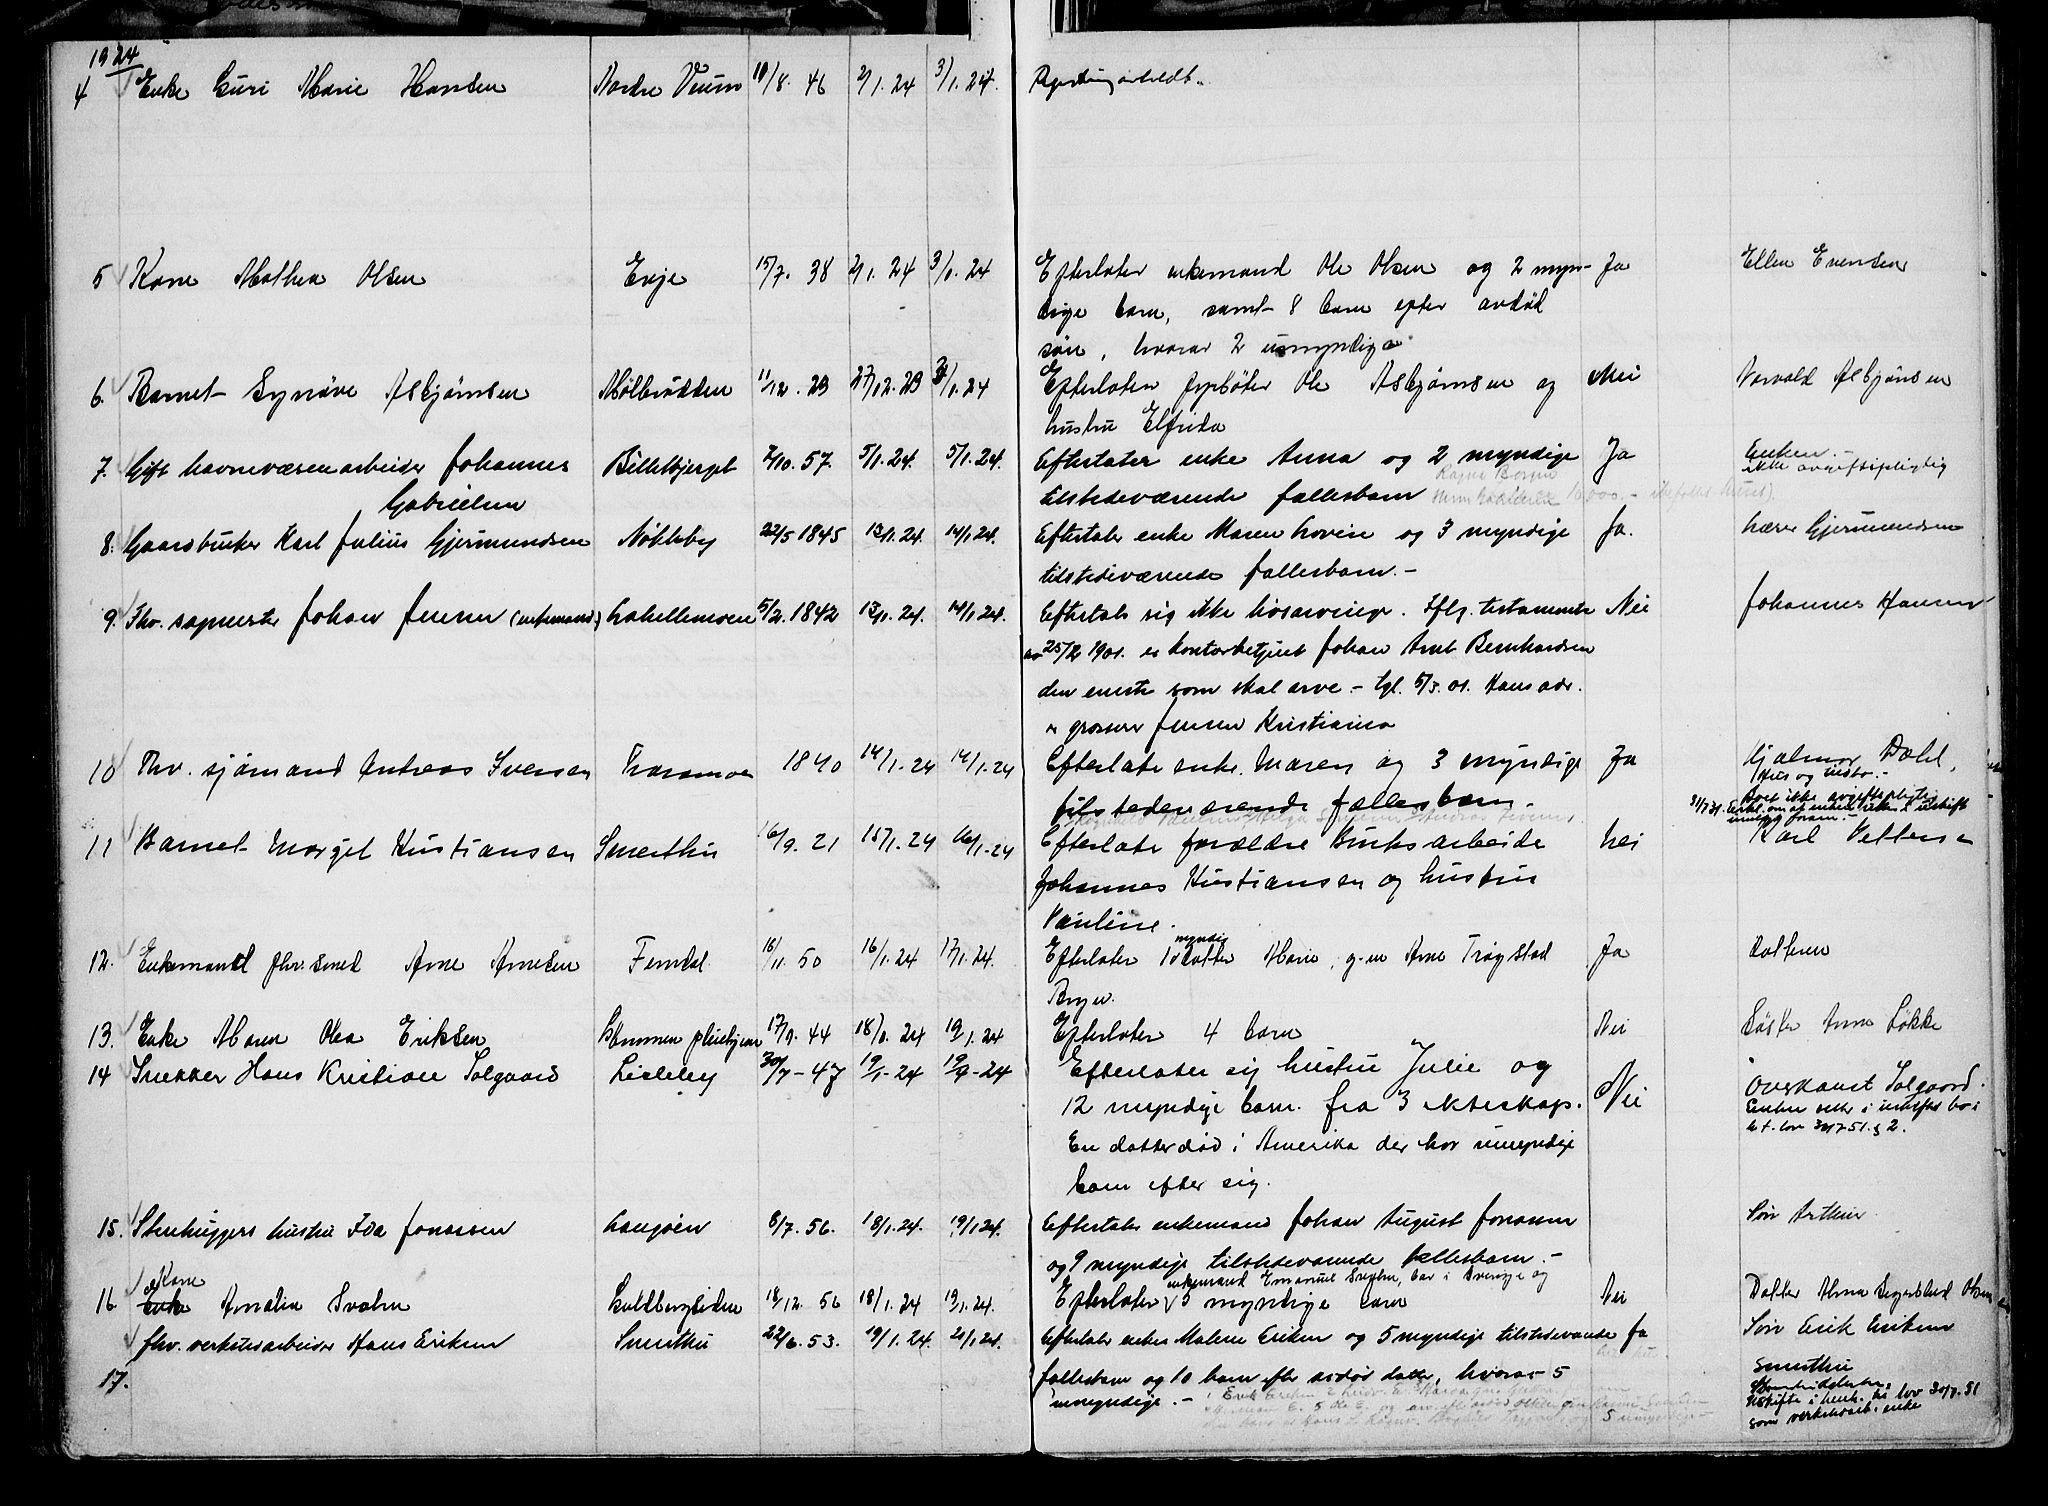 1924
4 Enke Guri Marie Hansen Nordre Veum 10/8. 46 2/1. 24 3/1. 24.
5 Kone Mathea Olsen Evje 15/7. 38 2/1. 24 3/1. 24 Efterlater enkemand Ole Olsen og 2 myn- Ja Ellen Evensen
dige barn, samt 8 barn efter avdød
søn, hvorav 2 umyndige
6. Barnet Synøve Asbjørnsen Mølbrødden 11/12. 23 27/12. 23 3/1. 24 Efterlater fyrbøter Ole Asbjørnsen og Nei Norvald Asbjørnsen
hustru Elfrida
7. Gift havnevæsenarbeider Johannes Billebjerget 2/10. 57. 5/1. 24. 5/1. 24. Efterlater enke Anna og 2 myndige Ja Enken.-
Gabrielsen tilstedeværende fællesbarn ikke avgiftspligtig
8. Gaardbruker Karl Julius Gjermundsen Nøkleby 22/5 1845 13/1. 24. 14/1 24. Efterlater enke Maren Lovise og 3 myndige Ja. Lærer Gjermundsen
tilstedeværende fællesbarn.-
9. Fhv. sagmester Johan Jensen (enkemand) Lahellemoen 5/2. 1842 13/1. 24. 14/1 24. Efterlater sig ikke livsarvinger. Iflg. testamente Nei Johannes Hansen
av 25/2 1901. er kontorbetjent Johan Arnt Bernhardsen
den eneste som skal arve.- Tgl. 5/3. 01. Hans adr.
er grosserer Jensen Kristiania
10 Fhv. sjømand Andreas Svensen Traramoen 1840 14/1.-24 14/1.-24 Efterlater enke Maren og 3 myndige Ja Hjalmar Dahl,
tilstedeværende fællesbarn. Hus og indbo.-
Boet ikke avgiftspligtig
11 Barnet Margit Kristiansen Smerthu 16/9. 21 15/1. 24 16/1-24 Efterlater forældre Bruksarbeider Nei Karl Pettersen
Johannes Kristiansen og hustru
Pauline.
12. Enkemand fhv. smed Arne Arnesen Femdal 18/11. 50 16/1. 24 17/1. 24. Efterlater 1 myndig datter Marie, g. m Arne Trøgstad Ja Datteren
Bryn.
13. Enke Maren Olea Eriksen Glemmen pleiehjem 17/9. 44 18/1. 24 19/1. 24 Efterlater 4 barn Nei Søster Anna Løkke
14 Snekker Hans Kristian Solgaard Lisleby 30/7-47 19/1-24 19/1-24 Efterlater sig hustru Julie og Nei Overkanst Solgaard.
12 myndige barn fra 3 ekteskap. Enken sitter i uskiftet bo i
En datter død i Amerika der har umyndige h. t. lov 30/7-51. § 2.
barn efter sig.
15. Stenhuggers hustru Ida Jonassen Langøen 8/7. 56. 18/1. 24. 19/1 24. Efterlater enkemand Johan August Jonassen Søn Arthur
og 9 myndige tilstedeværende fællesbarn.-
16 Enke Kone Amalie Svahn Guldbergsiden 18/12. 56 18/1. 24 19/1. 24. Efterlater enkemand Emanuel Svahn, bor i Sverige og 5 myndige barn Nei Datter Alma Segerblad Olsen
17. fhv. verkstedarbeider Hans Eriksen Smerthu 22/6. 53. 19/1. 24. 21/1 24. Efterlater enke Malene Eriksen og 5 myndige tilstedeværende Ja Søn Erik Eriksen
fællesbarn og 10 barn efter avdød datter, hvorav 5 Smerthu
umyndige.- Uskifte i henh. til lov 30/7. 51
som verkstedarb. enke